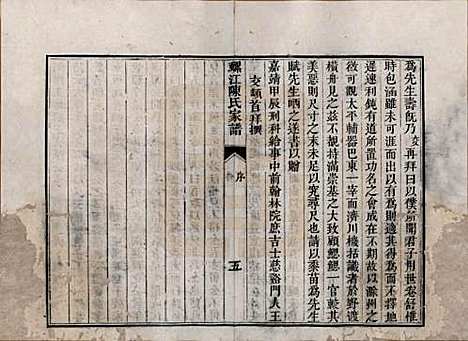 為先生壽旣乃交再拜曰以僕所聞君子用世卷舒
時包涵雖未可涯而出則必有以為是不擇地
遲速利鈍有道所置功名之會成在不期故以滁州之
撥可觀太平輔器巴東一宰而濟川機括識者於野渡
橫舟見之茲不滿崇基之大致顧鰓鰓一官較其
美惡則尺寸之末未足以究尋尺也請以黍苗為先生
賦先生哂之遂書以贈
嘉靖甲辰刑科給事中前翰林院庶吉士慈谿門人王
交頓首拜撰
螺江陳氏家譜
序
五